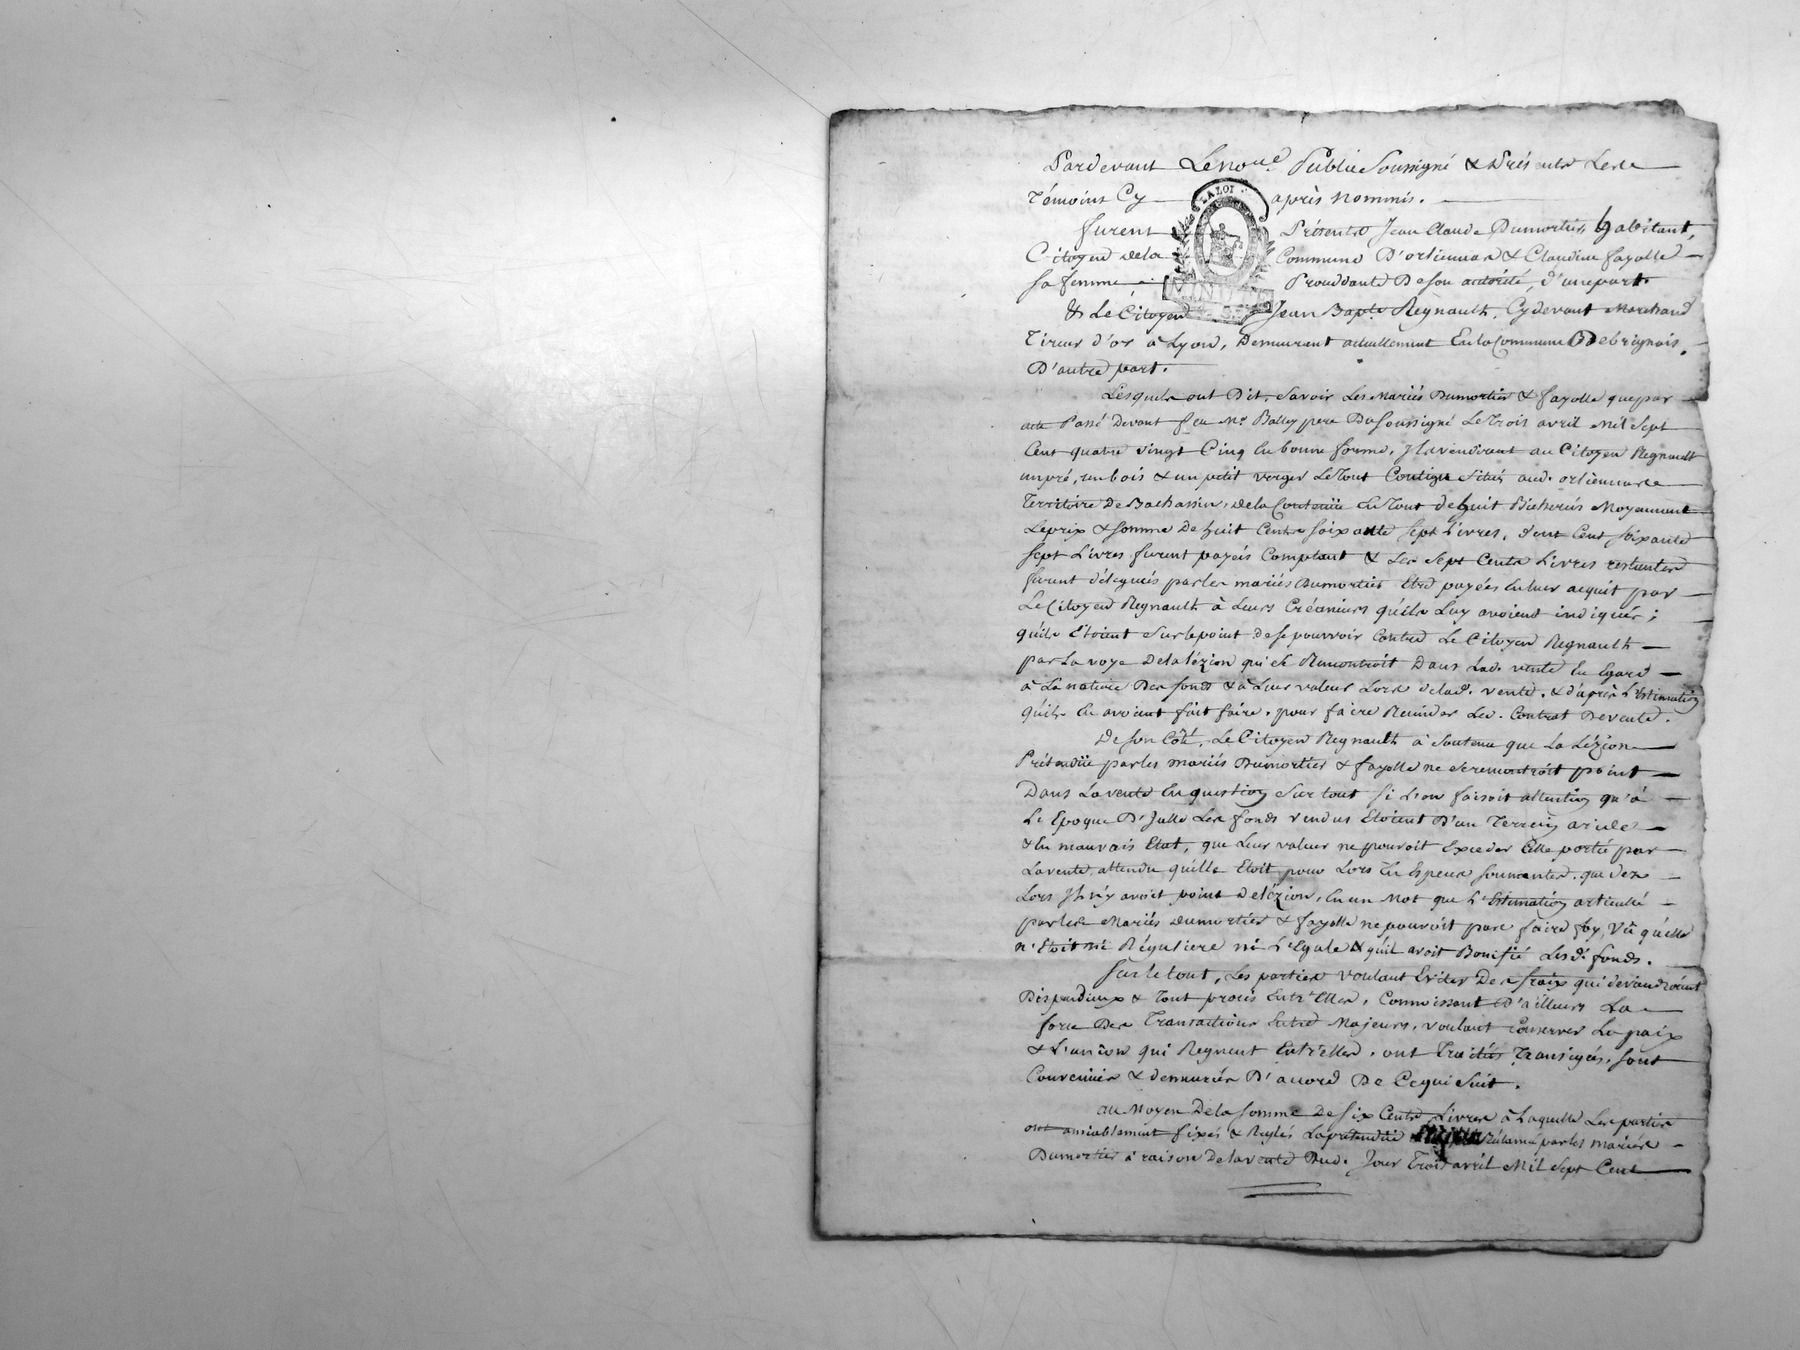 Pardevant Le no.re Public Soussigné & Présents Les
Témoins Cy après nommés.
furent Présents Jean Claude Dumortier, habitant,
Citoyen dela Commune D'orliennas & Claudine fayolle
sa femme Procédante De son autorité, d'une part.
& Le Citoyen Jean Bapte. Regnault, Cydevant Marchand
Tireur d'or à Lyon, Demeurant actuellement En la Commune De brignais.
D'autre part.
Lesquels ont Dit, Savoir Les Mariés Dumortier & fayolle que par
acte Passé Devant feu Me. Balley pere Du soussigné Le Trois avril Mil Sept
Cent quatre vingt Cinq En bonne forme, Ils vendirent au Citoyen Regnault
un pré, un bois & un petit verger Le Tout Contigu Situés aud. orliennas
Territoire De Bachassin, de la Contenüe En Tout de huit Bicherées Moyennant
Le prix & somme De huit Cents soixante sept Livres, dont Cent soixante
sept Livres furent payés Comptant & Les Sept Cents Livres restantes
furent déleguées par les mariés Dumortier Etre payées En leur acquit par
Le Citoyen Regnault à Leurs Créanciers qu'ils Luy avoient indiqués ;
qu'ils Etoient Sur le point de se pourvoir Contre Le Citoyen Regnault
par La voye De la lézion qui se Rencontroit Dans Lad. vente En Egard
à La nature Des fonds & à Leur valeur Lors de lad. vente, & d'après L'Estimation
qu'ils En avoient fait faire, pour faire Rescinder Led. Contrat De vente.
De son Côté, Le Citoyen Regnault à Soutenu que La Lézion
Prétendüe par les mariés Dumortier & fayolle ne se rencontroit point
Dans La vente En question Sur tout Si L'on faisoit attention qu'à
L'Epoque D'Icelle Les fonds vendus Etoient D'un Terrein aride
& En mauvais Etat, que Leur valeur ne pouvoit Exceder Celle portée par
La vente, attendu qu'elle Etoit pour Lors En Especes sonnantes, que des
Lors Il n'y avoit point De lézion, En un Mot que L'Estimation articulée
par les Mariés Dumortier & fayolle ne pouvoit pas faire foy, Vû qu'elle
n'Etoit ni Réguliere ni Légale & qu'il avoit Bonifié Lesd. fonds.
Sur le tout, Les parties voulant Eviter Des fraix qui deviendroient
Dispendieux & Tout procès Entr'Elles, Connoissant D'ailleurs La
force Des Transactions Entre Majeurs, voulant Conserver La paix
& L'union qui Regnent Entr'elles, ont Traités Transigés, sont
Convenües & demeurées D'accord De Ce qui Suit.
au Moyen De la somme De Six Cents Livres à Laquelle Les parties
ont amiablement fixés & Reglés La prétendüe réclamée par les mariés
Dumortier à raison De la vente Dud. Jour Trois avril Mil Sept Cent
LA LOI